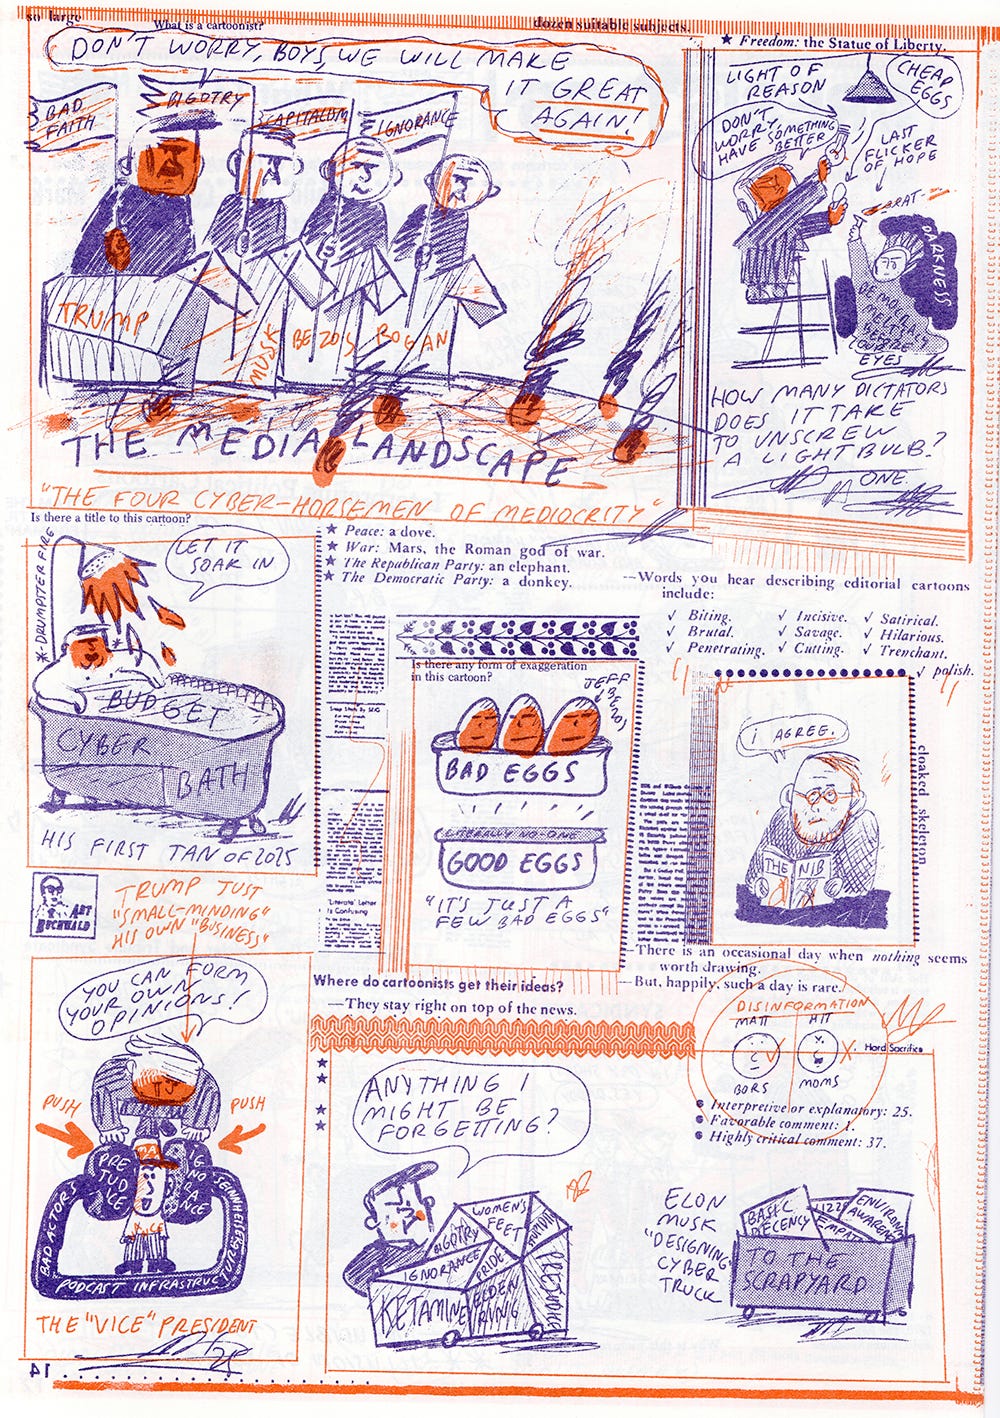 so large
What is a cartoonist?
dozen suitable subjects.
DON'T WORRY, BOYS, WE WILL MAKE
IT GREAT
AGAIN!
BAD
FAITH
BIGOTRY
CAPITALISM
IGNORANCE
TRUMP
MUSK
BEZOS
ROGAN
THE MEDIA LANDSCAPE
"THE FOUR CYBER-HORSEMEN OF MEDIOCRITY"
★ Freedom: the Statue of Liberty.
LIGHT OF
REASON
CHEAP
EGGS
DON'T
WORRY,
HAVE SOMETHING
BETTER
LAST
FLICKER
OF HOPE
DARKNESS
EYES
HOW MANY DICTATORS
DOES IT TAKE
TO UNSCREW
A LIGHTBULB?
ONE.
Is there a title to this cartoon?
LET IT
SOAK IN
*DRUMPSTER FIRE
BUDGET
CYBER
BATH
HIS FIRST TAN OF 2025
★ Peace: a dove.
★ War: Mars, the Roman god of war.
★ The Republican Party: an elephant.
★ The Democratic Party: a donkey.
—Words you hear describing editorial cartoons
include:
✓ Biting. ✓ Incisive. ✓ Satirical.
✓ Brutal. ✓ Savage. ✓ Hilarious.
✓ Penetrating. ✓ Cutting. ✓ Trenchant.
✓ polish.
Is there any form of exaggeration
in this cartoon?
JEFF
BEZOS
BAD EGGS
LITERALLY NO-ONE
GOOD EGGS
"IT'S JUST A
FEW BAD EGGS"
'Literate' Letter
Is Confusing
I AGREE.
THE NIB
cloaked skeleton
ART
BUCHWALD
TRUMP JUST
"SMALL-MINDING"
HIS OWN "BUSINESS"
—There is an occasional day when nothing seems
worth drawing.
—But, happily, such a day is rare.
YOU CAN FORM
YOUR OWN
OPINIONS!
PUSH
PUSH
PRE
JUD
ICE
IG
NO
RA
NCE
VICE
BAD ACTORS
PODCAST INFRASTRUC
THE "VICE" PRESIDENT
14
Where do cartoonists get their ideas?
—They stay right on top of the news.
DISINFORMATION
MATT
HIT
BORS
MOMS
Hard Sacrifice
Interpretive or explanatory: 25.
Favorable comment: 1.
Highly critical comment: 37.
ANYTHING I
MIGHT BE
FORGETTING?
WOMEN'S
FEET
BIGOTRY
IGNORANCE
PRIDE
KETAMINE
ELDEN
RING
PRESTIGE
ELON
MUSK
"DESIGNING"
CYBER
TRUCK
BASIC
DECENCY
TO THE
SCRAPYARD